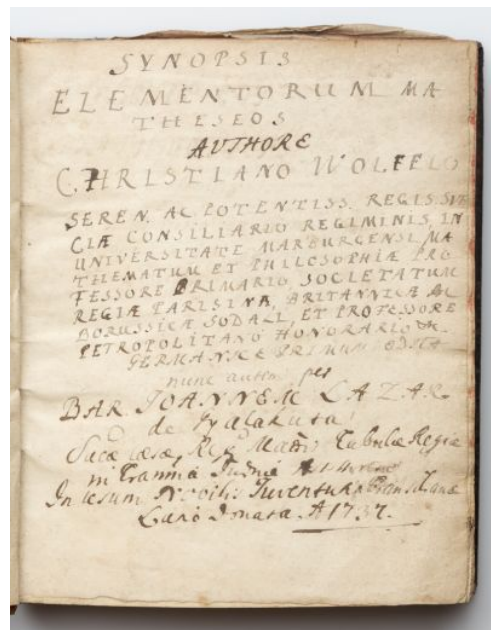 SYNOPSIS
ELEMENTORUM MA
THESEOS
AUTHORE
CHRISTIANO WOLFFIO
SEREN. AC POTENTISS. REGIS SVE
CIÆ CONSILIARIO REGIMINIS, IN
UNIVERSITATE MARBURGENSI, MA
THEMATUM ET PHILOSOPHIÆ PRO
FESSORE PRIMARIO SOCIETATUM
REGIÆ PARISINÆ, BRITANNICÆ AC
BORUSSICÆ SODALI, ET PROFESSORE
PETROPOLITANO HONORARIO
GERMANICE PRIMUM EDITA
nunc per
BAR. JOANNEM LAZAR
de Gyalakuta
Tabulæ Regiæ
in
In usum Nobilis Juventutis
donata. A 1737.